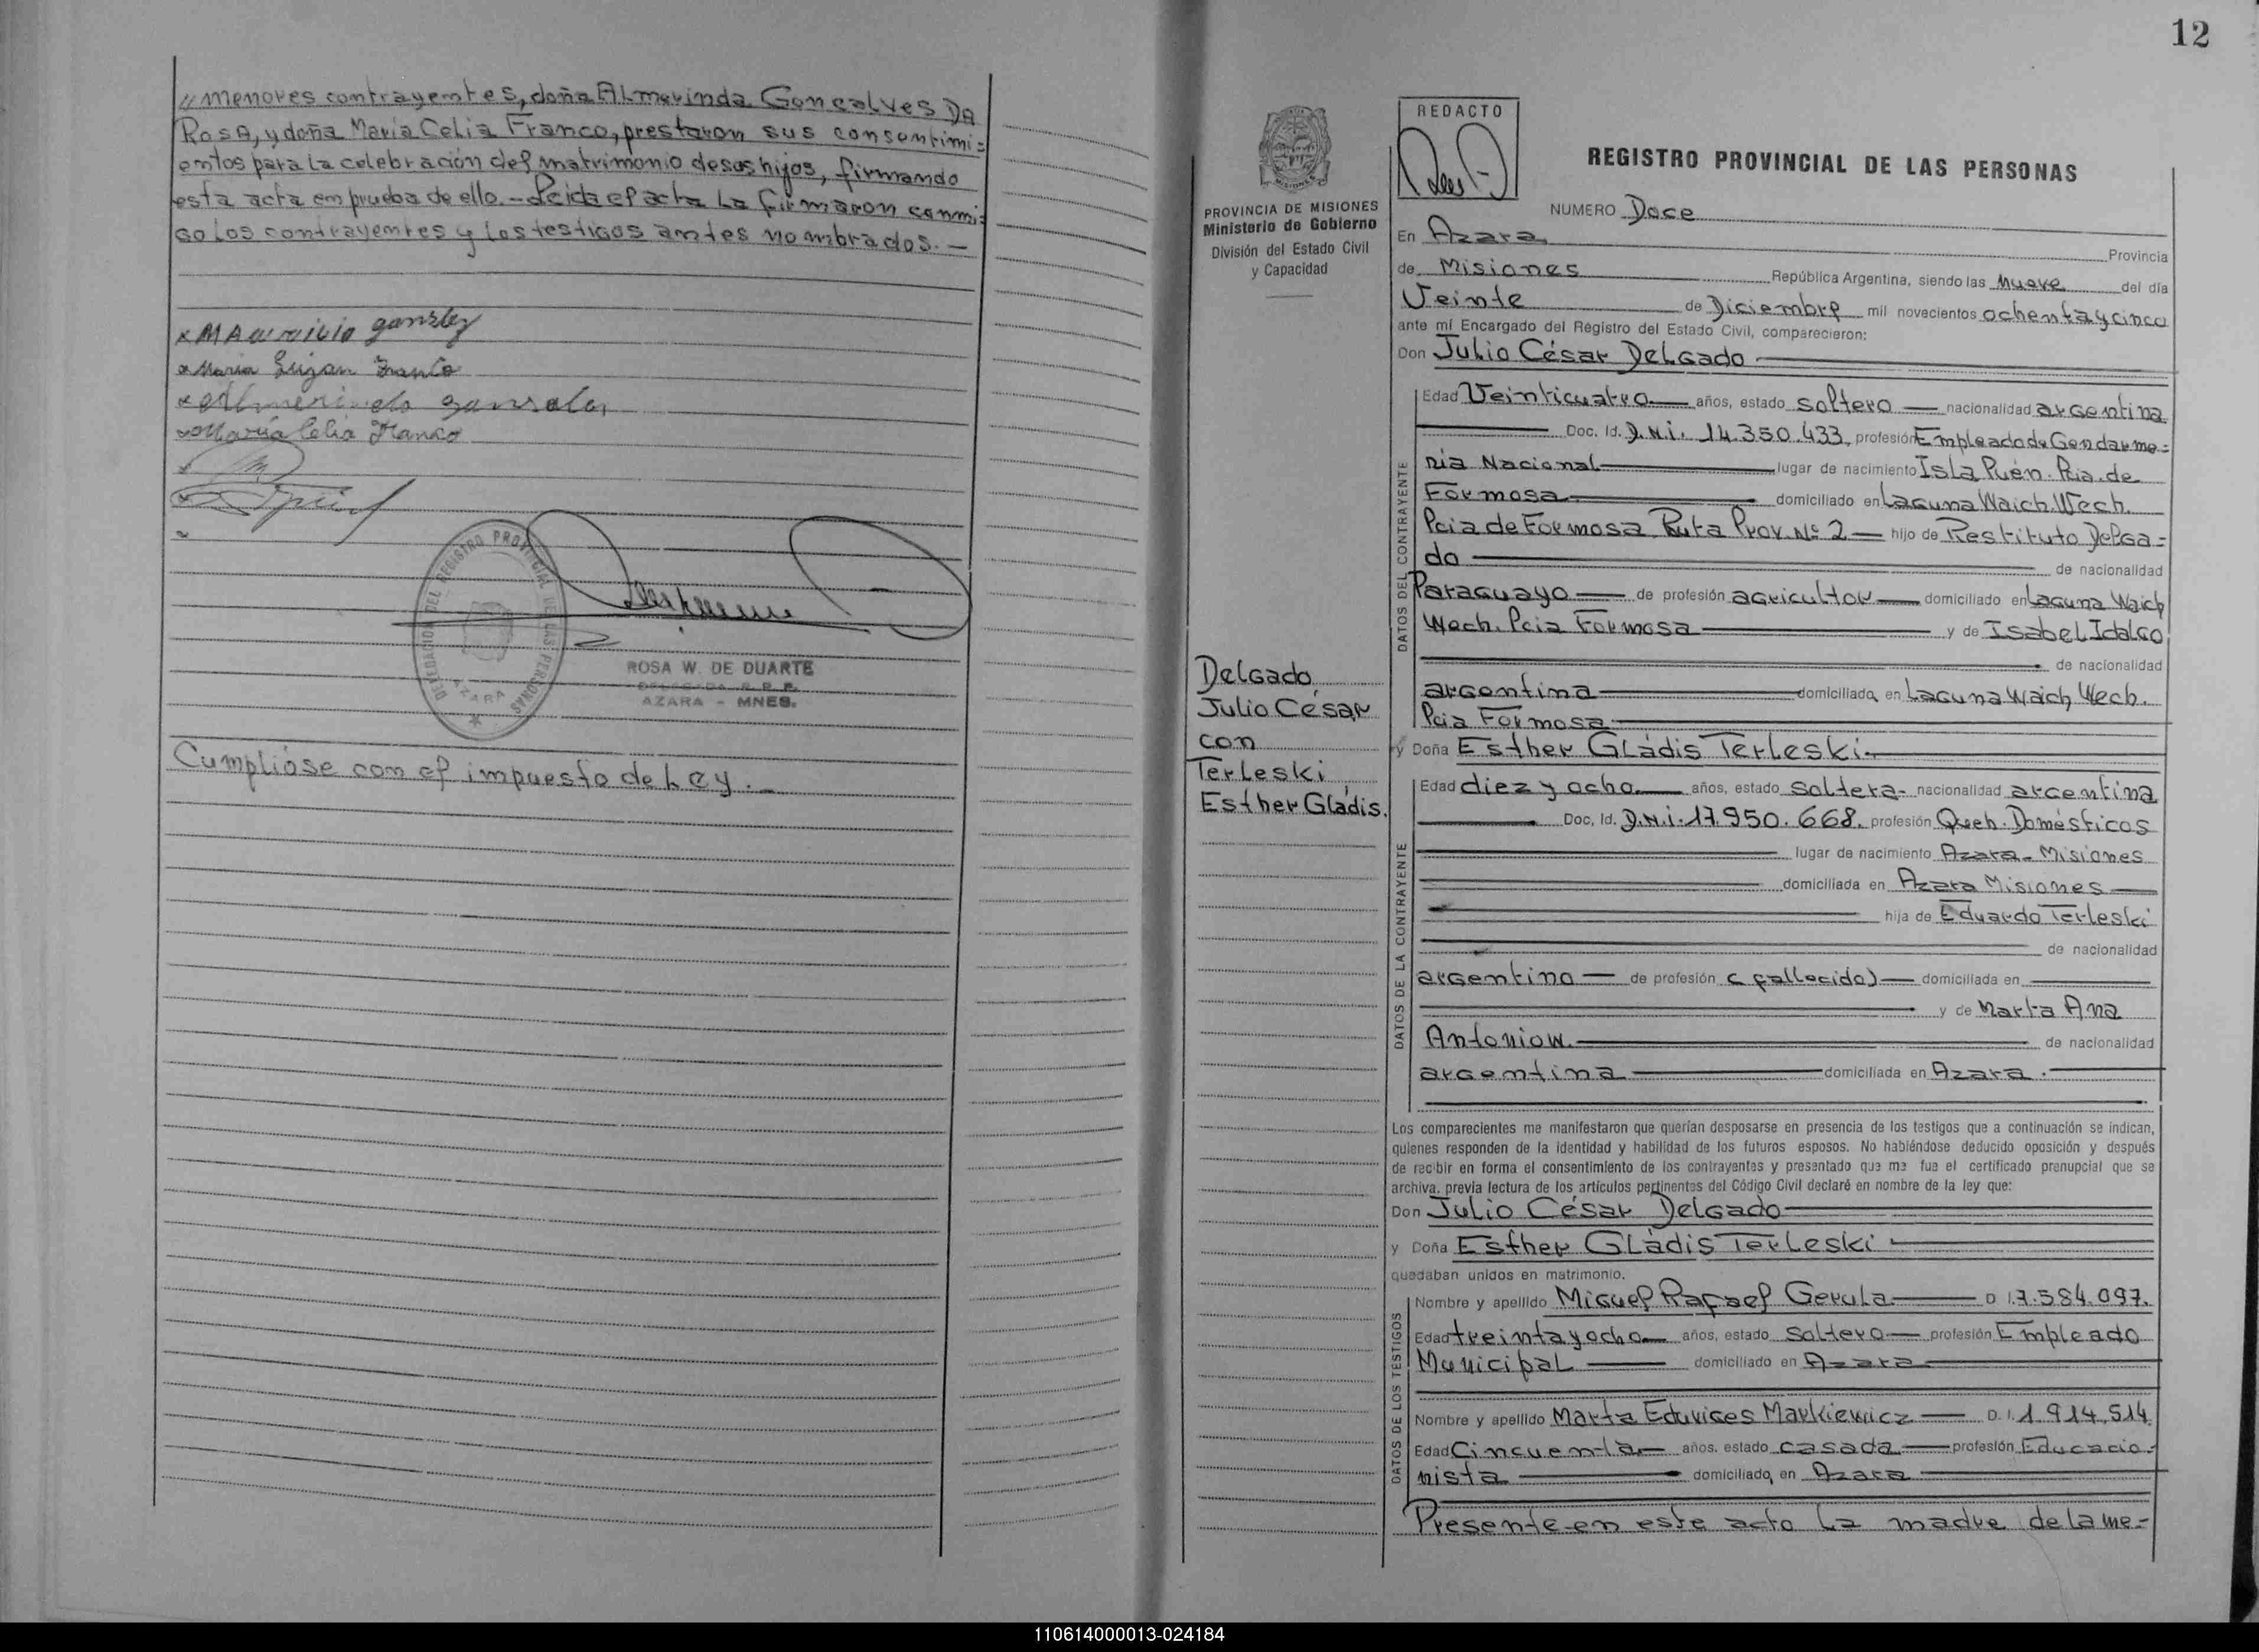 12
" menores contrayentes, doña ALmerinda Goncalves DA
Rosa, y doña María Celia Franco, prestaron sus consentimi=
entos para La celebración del matrimonio de sus hijos, firmando
esta acta en prueba de ello.- Leida el acta La firmaron conmi=
go Los contrayentes y Los testigos antes nombrados.-
x MAuricio
x Maria Franco
x
x María Celia Franco
DELEGACION DEL REGISTRO PROVINCIAL DE LAS PERSONAS
AZARA
ROSA W. DE DUARTE
DELEGADA R. P. P.
AZARA - MNES.
Cumplióse con el impuesto de Ley.-
PROVINCIA DE MISIONES
Ministerio de Gobierno
División del Estado Civil
y Capacidad
Delgado
Julio César
con
Terleski
Esther Gládis.
REDACTO
REGISTRO PROVINCIAL DE LAS PERSONAS
NUMERO Doce
En Azara Provincia
de Misiones República Argentina, siendo las Nueve del día
Veinte de Diciembre mil novecientos ochenta y cinco
ante mí Encargado del Registro del Estado Civil, comparecieron:
Don Julio César Delgado
DATOS DEL CONTRAYENTE
Edad Veinticuatro años, estado soltero nacionalidad argentina
Doc. Id. D.N.i. 14.350.433, profesión Empleado de Gendarme=
ria Nacional lugar de nacimiento Isla Puén. Pcia. de
Formosa domiciliado en Laguna Waich Wech.
Pcia de Formosa Ruta Prov. Nº 2 hijo de Restituto Delga=
do de nacionalidad
Paraguayo de profesión agricultor domiciliado en Laguna Waich
Wech. Pcia Formosa y de Isabel Idalgo
de nacionalidad
argentina domiciliada en Laguna Waich Wech.
Pcia Formosa
y Doña Esther Gládis Terleski.
DATOS DE LA CONTRAYENTE
Edad diez y ocho años, estado soltera- nacionalidad argentina
Doc. Id. D.N.i. 17.950.668. profesión Queh. Domésticos
lugar de nacimiento Azara- Misiones
domiciliada en Azara Misiones
hija de Eduardo Terleski
de nacionalidad
argentino de profesión (fallecido) domiciliada en
y de Marta Ana
Antoniow. de nacionalidad
argentina domiciliada en Azara.
Los comparecientes me manifestaron que querían desposarse en presencia de los testigos que a continuación se indican,
quienes responden de la identidad y habilidad de los futuros esposos. No habiéndose deducido oposición y después
de recibir en forma el consentimiento de los contrayentes y presentado que me fue el certificado prenupcial que se
archiva, previa lectura de los artículos pertinentes del Código Civil declaré en nombre de la ley que:
Don Julio César Delgado
y Doña Esther Gládis Terleski
quedaban unidos en matrimonio.
DATOS DE LOS TESTIGOS
Nombre y apellido Miguel Rafael Gerula D I.7.584.097.
Edad treinta y ocho años, estado soltero profesión Empleado
Municipal domiciliado en Azara
Nombre y apellido Marta Eduviges Markiewicz D.I. 1.914.514
Edad Cincuenta años, estado casada profesión Educacio-
nista domiciliado, en Azara
Presente en este acto La madre de la me-
110614000013-024184